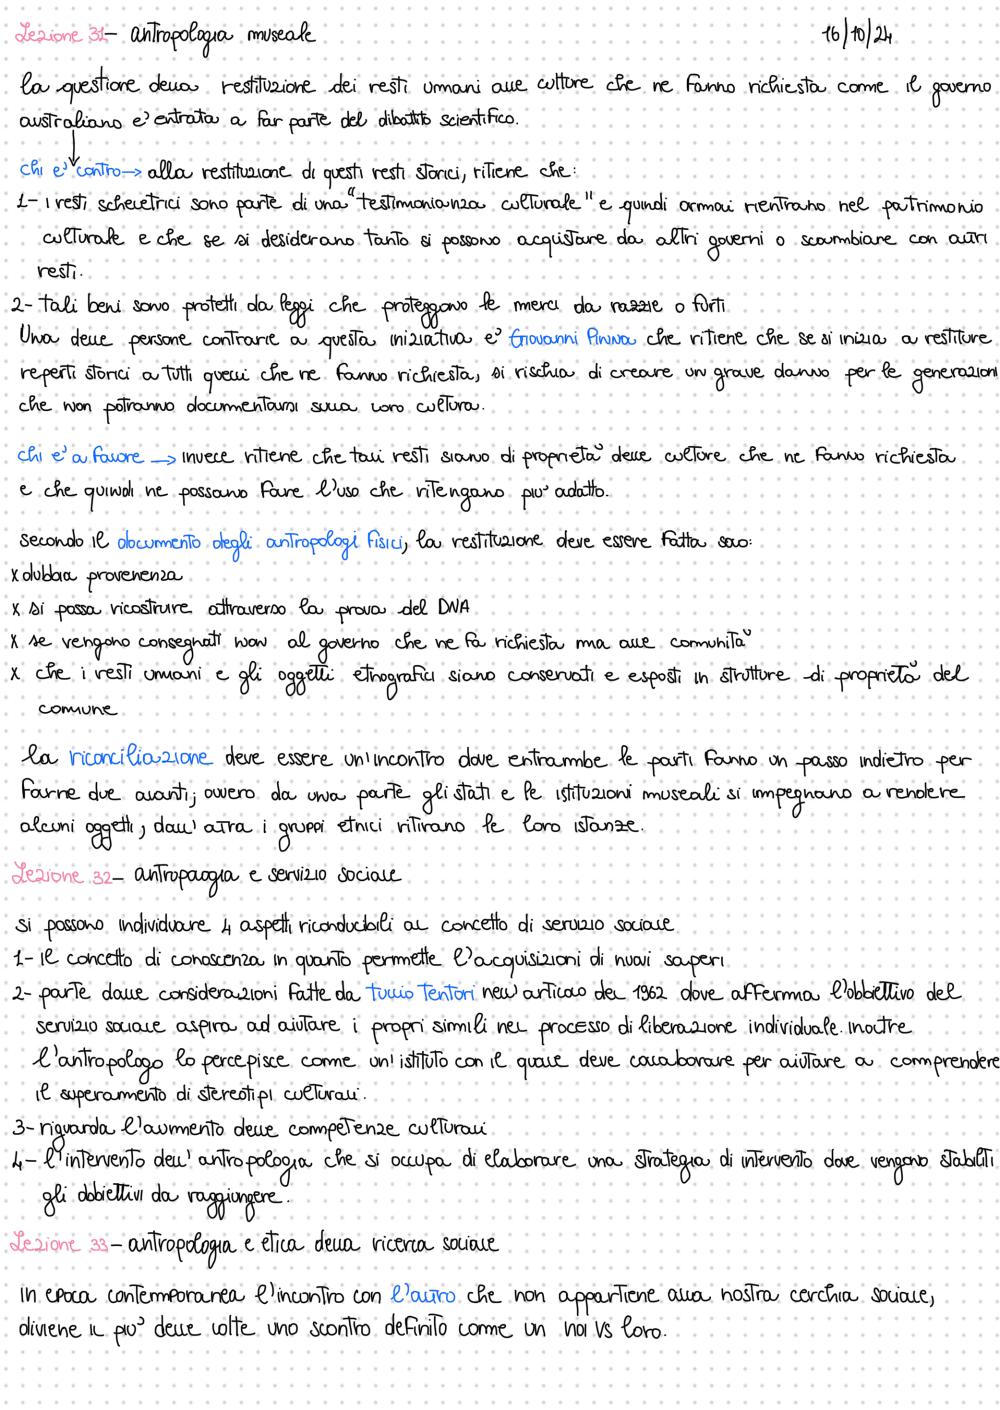 Lezione 31- antropologia museale 16/10/24
la questione della restituzione dei resti umani alle culture che ne fanno richiesta come il governo
australiano e' entrata a far parte del dibattito scientifico.
chi e' contro → alla restituzione di questi resti storici, ritiene che:
1- i resti scheletrici sono parte di una "testimonianza culturale" e quindi ormai rientrano nel patrimonio
culturale e che se si desiderano tanto si possono acquistare da altri governi o scambiare con altri
resti.
2- tali beni sono protetti da leggi che proteggono le merci da razzie o furti
Una delle persone contrarie a questa iniziativa e' Giovanni Pinna che ritiene che se si inizia a restituire
reperti storici a tutti quelli che ne fanno richiesta, si rischia di creare un grave danno per le generazioni
che non potranno documentarsi sulla loro cultura.
chi e' a favore → invece ritiene che tali resti siano di proprietà delle culture che ne fanno richiesta
e che quindi ne possano fare l'uso che ritengano piu' adatto.
secondo il documento degli antropologi fisici, la restituzione deve essere fatta solo:
x dubbia provenenza
x si possa ricostruire attraverso la prova del DNA
x se vengono consegnati non al governo che ne fa richiesta ma alle comunità
x che i resti umani e gli oggetti etnografici siano conservati e esposti in strutture di proprietà del
comune
la riconciliazione deve essere un'incontro dove entrambe le parti fanno un passo indietro per
farne due avanti; ovvero da una parte gli stati e le istituzioni museali si impegnano a rendere
alcuni oggetti, dall'altra i gruppi etnici ritirano le loro istanze.
Lezione 32- antropologia e servizio sociale
si possono individuare 4 aspetti riconducibili al concetto di servizio sociale
1- il concetto di conoscenza in quanto permette l'acquisizioni di nuovi saperi
2- parte dalle considerazioni fatte da tullio Tentori nell'articolo del 1962 dove afferma l'obbiettivo del
servizio sociale aspira ad aiutare i propri simili nel processo di liberazione individuale. Inoltre
l'antropologo lo percepisce come un'istituto con il quale deve collaborare per aiutare a comprendere
il superamento di stereotipi culturali.
3- riguarda l'aumento delle competenze culturali
4- l'intervento dell'antropologia che si occupa di elaborare una strategia di intervento dove vengono stabiliti
gli obbiettivi da raggiungere.
Lezione 33- antropologia e etica della ricerca sociale
In epoca contemporanea l'incontro con l'altro che non appartiene alla nostra cerchia sociale,
diviene il piu' delle volte uno scontro definito come un noi vs loro.